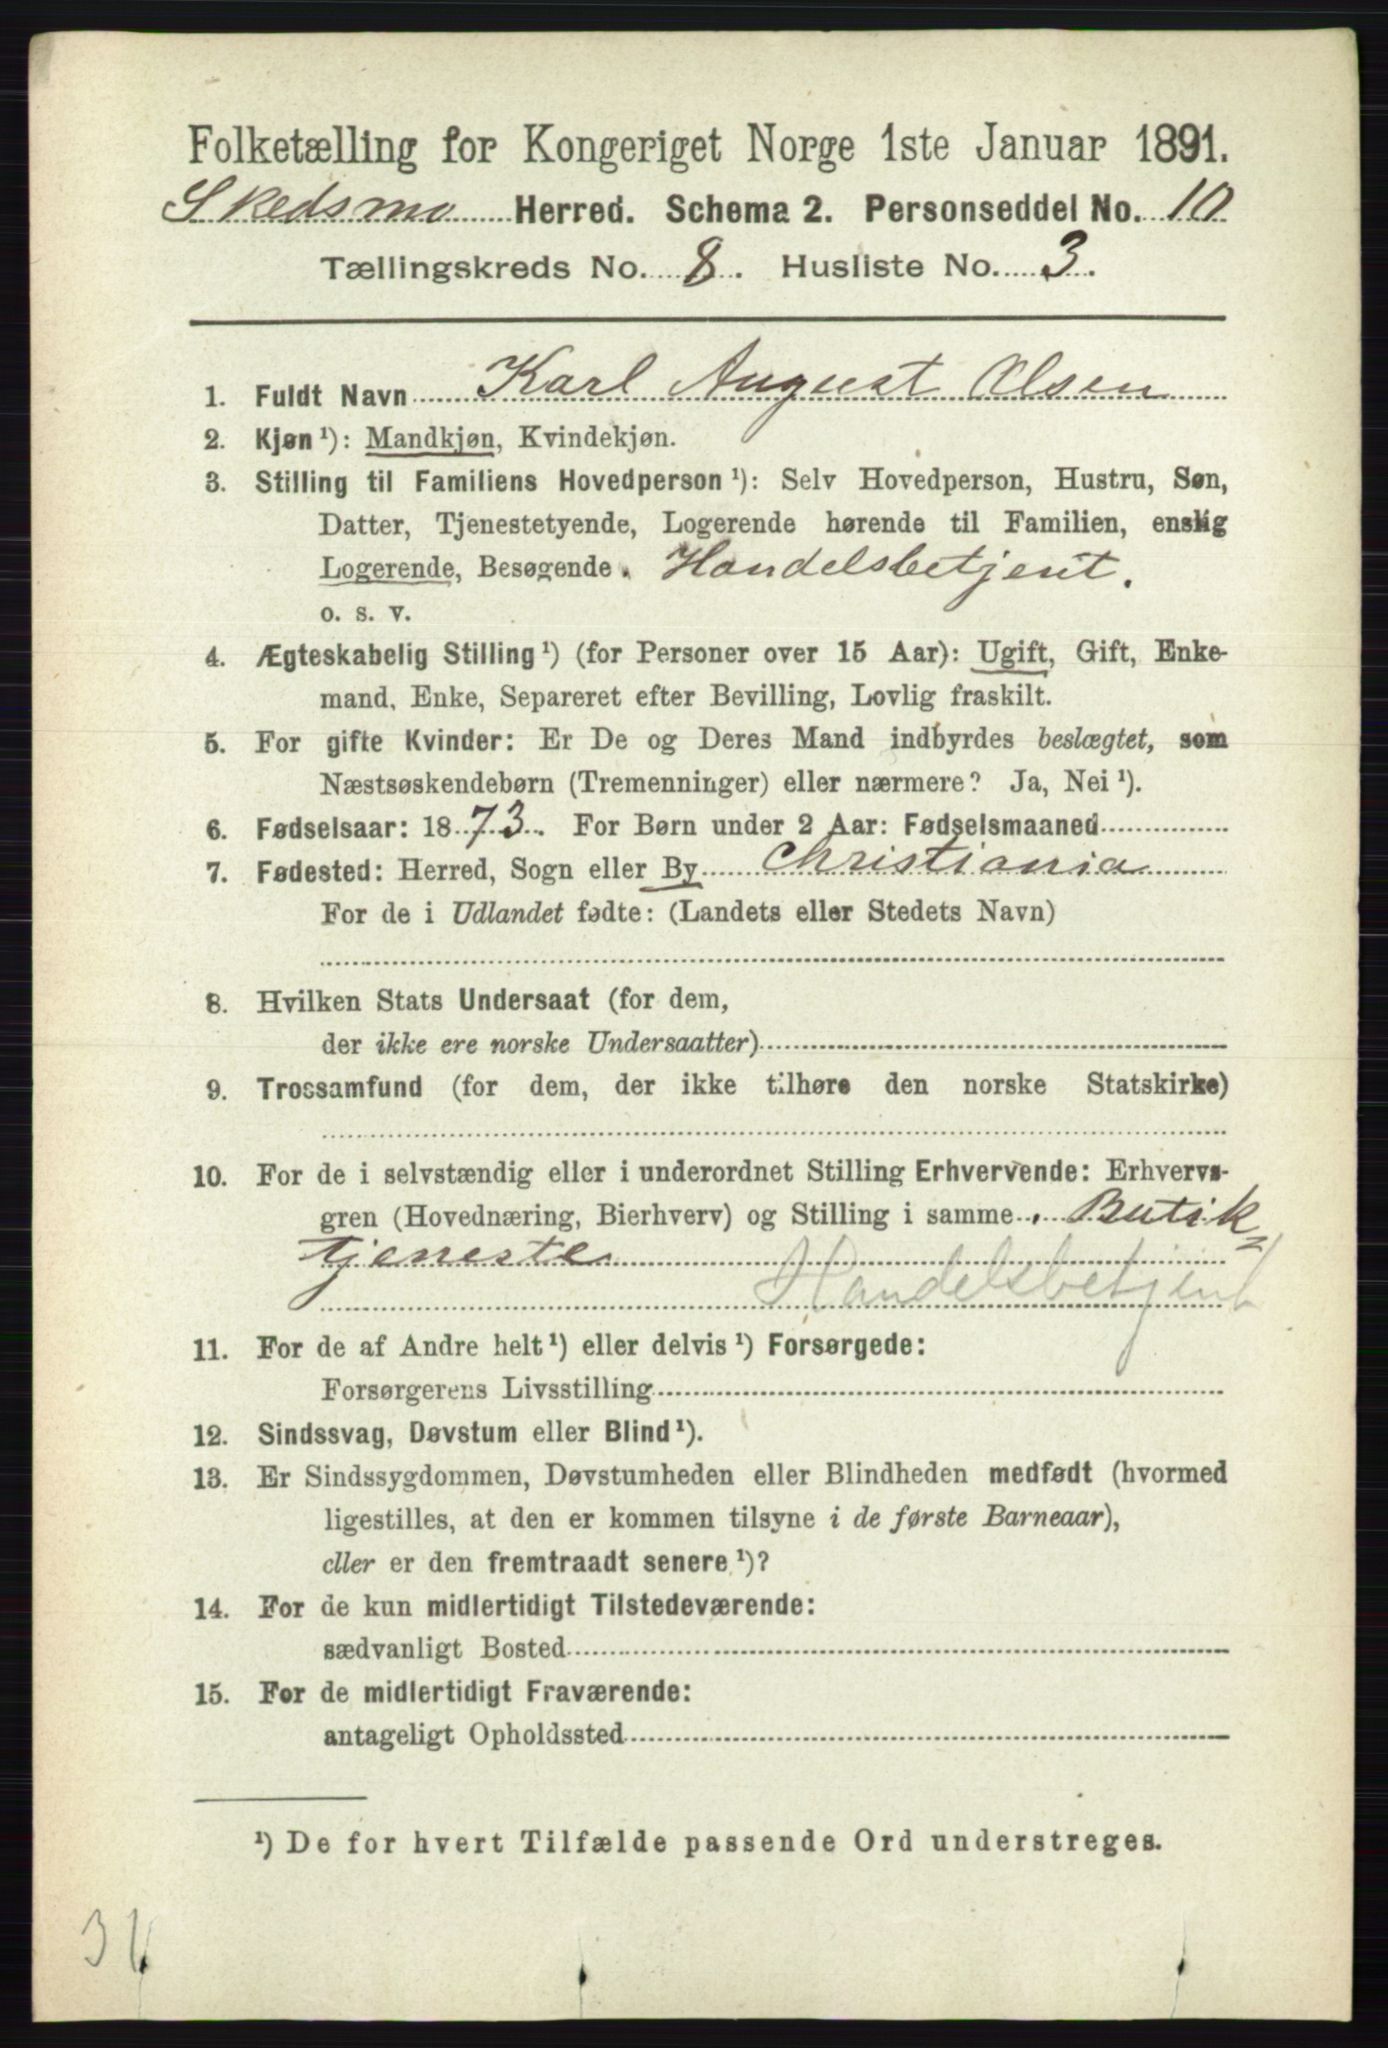 Folketælling for Kongeriget Norge 1ste Januar 1891.
Skedsmo Herred. Schema 2. Personseddel No. 10
Tællingskreds No. 8. Husliste No. 3.
1. Fuldt Navn Karl August Olsen
2. Kjøn ¹): Mandkjøn, Kvindekjøn.
3. Stilling til Familiens Hovedperson ¹): Selv Hovedperson, Hustru, Søn,
Datter, Tjenestetyende, Logerende hørende til Familien, enslig
Logerende, Besøgende. Handelsbetjent.
o. s. v.
4. Ægteskabelig Stilling ¹) (for Personer over 15 Aar): Ugift, Gift, Enke-
mand, Enke, Separeret efter Bevilling, Lovlig fraskilt.
5. For gifte Kvinder: Er De og Deres Mand indbyrdes beslægtet, som
Næstsøskendebørn (Tremenninger) eller nærmere? Ja, Nei ¹).
6. Fødselsaar: 1873. For Børn under 2 Aar: Fødselsmaaned
7. Fødested: Herred, Sogn eller By Christiania
For de i Udlandet fødte: (Landets eller Stedets Navn)
8. Hvilken Stats Undersaat (for dem,
der ikke ere norske Undersaatter)
9. Trossamfund (for dem, der ikke tilhøre den norske Statskirke)
10. For de i selvstændig eller i underordnet Stilling Erhvervende: Erhvervs-
gren (Hovednæring, Bierhverv) og Stilling i samme. Butik-
tjeneste
Handelsbetjent
11. For de af Andre helt ¹) eller delvis ¹) Forsørgede:
Forsørgerens Livsstilling
12. Sindssvag, Døvstum eller Blind ¹).
13. Er Sindssygdommen, Døvstumheden eller Blindheden medfødt (hvormed
ligestilles, at den er kommen tilsyne i de første Barneaar),
eller er den fremtraadt senere ¹)?
14. For de kun midlertidigt Tilstedeværende:
sædvanligt Bosted
15. For de midlertidigt Fraværende:
antageligt Opholdssted
¹) De for hvert Tilfælde passende Ord understreges.